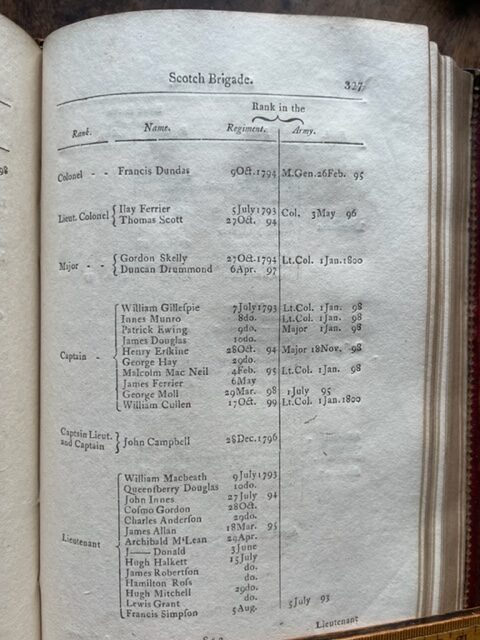 Scotch Brigade. 327
Rank in the
Rank. Name. Regiment. Army.
Colonel - - Francis Dundas 9Oct.1794 M.Gen.26Feb. 95
Lieut. Colonel { Ilay Ferrier 5July1793 Col. 3May 96
Thomas Scott 27Oct. 94
Major - - { Gordon Skelly 27Oct.1794 Lt.Col. 1Jan.1800
Duncan Drummond 6Apr. 97
William Gillespie 7July1793 Lt.Col. 1Jan. 98
Innes Munro 8do. Lt.Col. 1Jan. 98
Patrick Ewing 9do. Major 1Jan. 98
James Douglas 10do.
Captain - { Henry Erskine 28Oct. 94 Major 18Nov. 98
George Hay 29do.
Malcolm Mac Neil 4Feb. 95 Lt.Col. 1Jan. 98
James Ferrier 6May
George Moll 29Mar. 98 1July 95
William Cullen 17Oct. 99 Lt.Col. 1Jan.1800
Captain Lieut. and Captain } John Campbell 28Dec.1796
William Macbeath 9July1793
Queensberry Douglas 10do.
John Innes 27July 94
Cosmo Gordon 28Oct.
Charles Anderson 29do.
James Allan 18Mar. 95
Lieutenant { Archibald McLean 29Apr.
J—— Donald 3June
Hugh Halkett 15July
James Robertson do.
Hamilton Ross do.
Hugh Mitchell 29do.
Lewis Grant do. 5July 93
Francis Simpson 5Aug.
Lieutenant